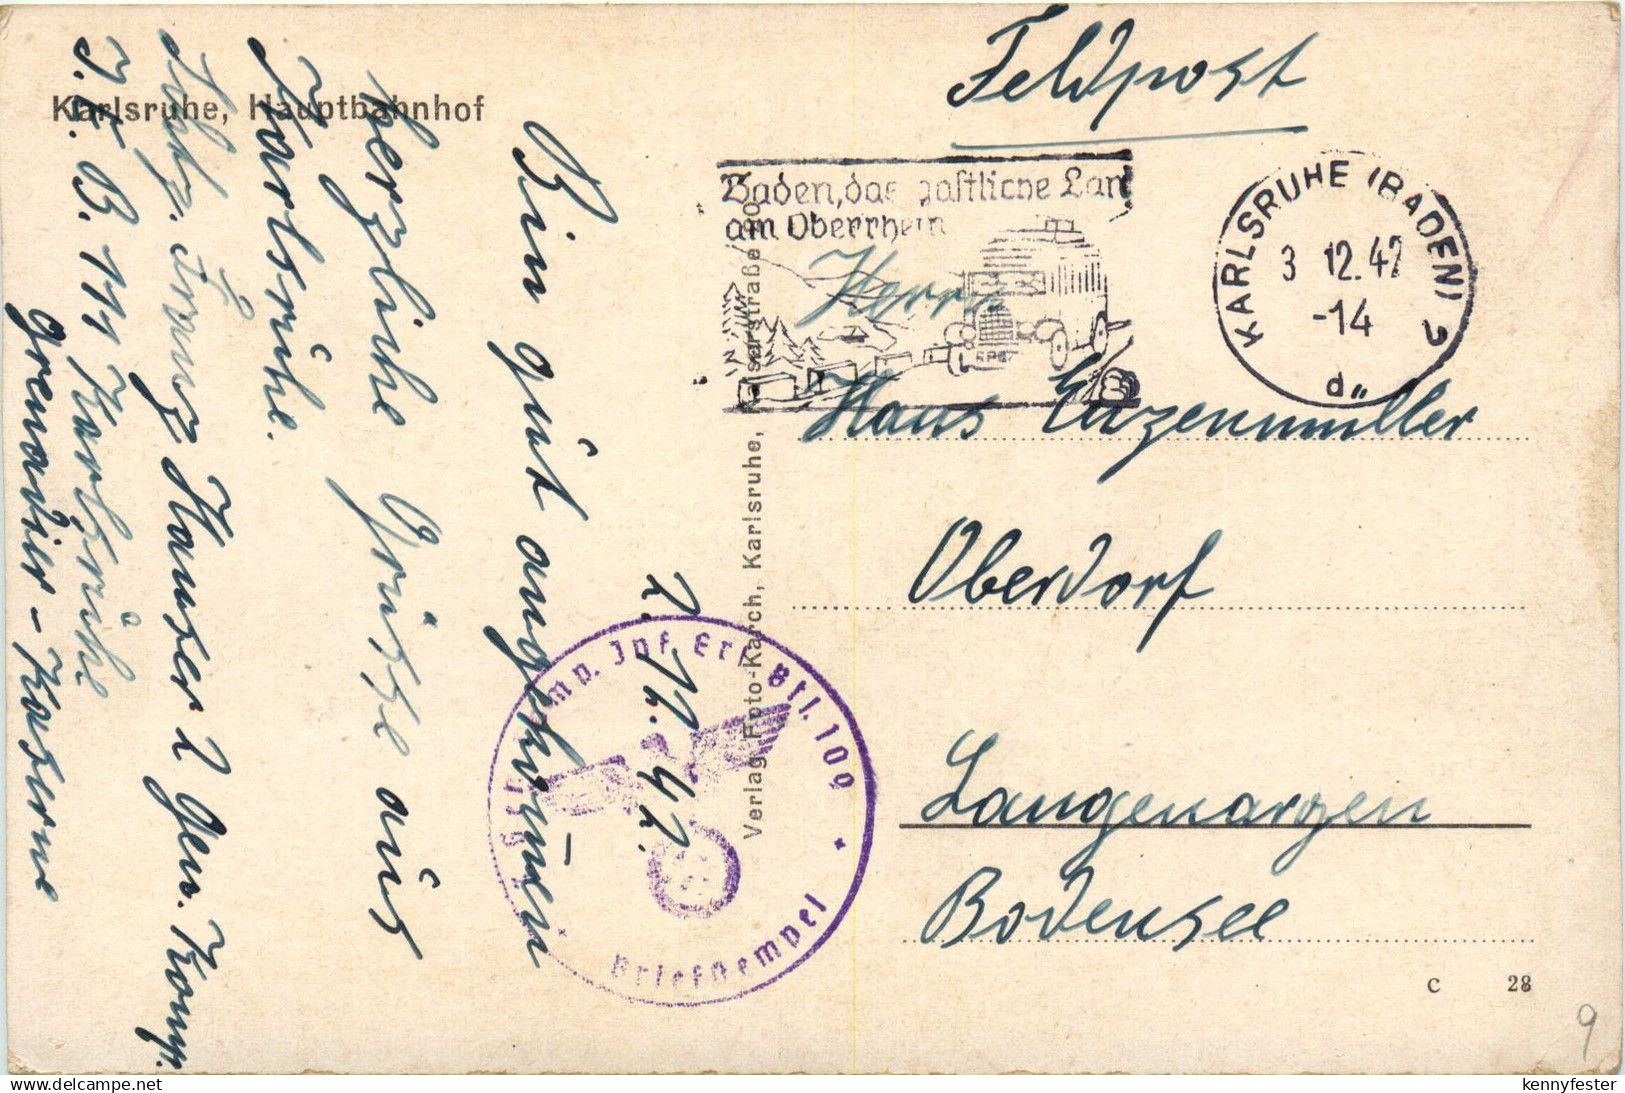 Karlsruhe, Hauptbahnhof
2. 12. 42.
Bin gut angekommen
herzliche Grüsse aus
Karlsruhe.
Franz Hauser 2 Gen. Komp.
J.E.B. 111 Karlsruhe
Grenadier-Kaserne
Verlag Foto-Karch, Karlsruhe, Kaiserstraße
Inf. Ers. Btl. 109
Briefstempel
Feldpost
Baden, das gastliche Land
am Oberrhein
KARLSRUHE (BADEN) 2
3 12.42
-14
d
Herrn
Hans Enzenmüller
Oberdorf
Langenargen
Bodensee
C 28
9
delcampe.net
kennyfester